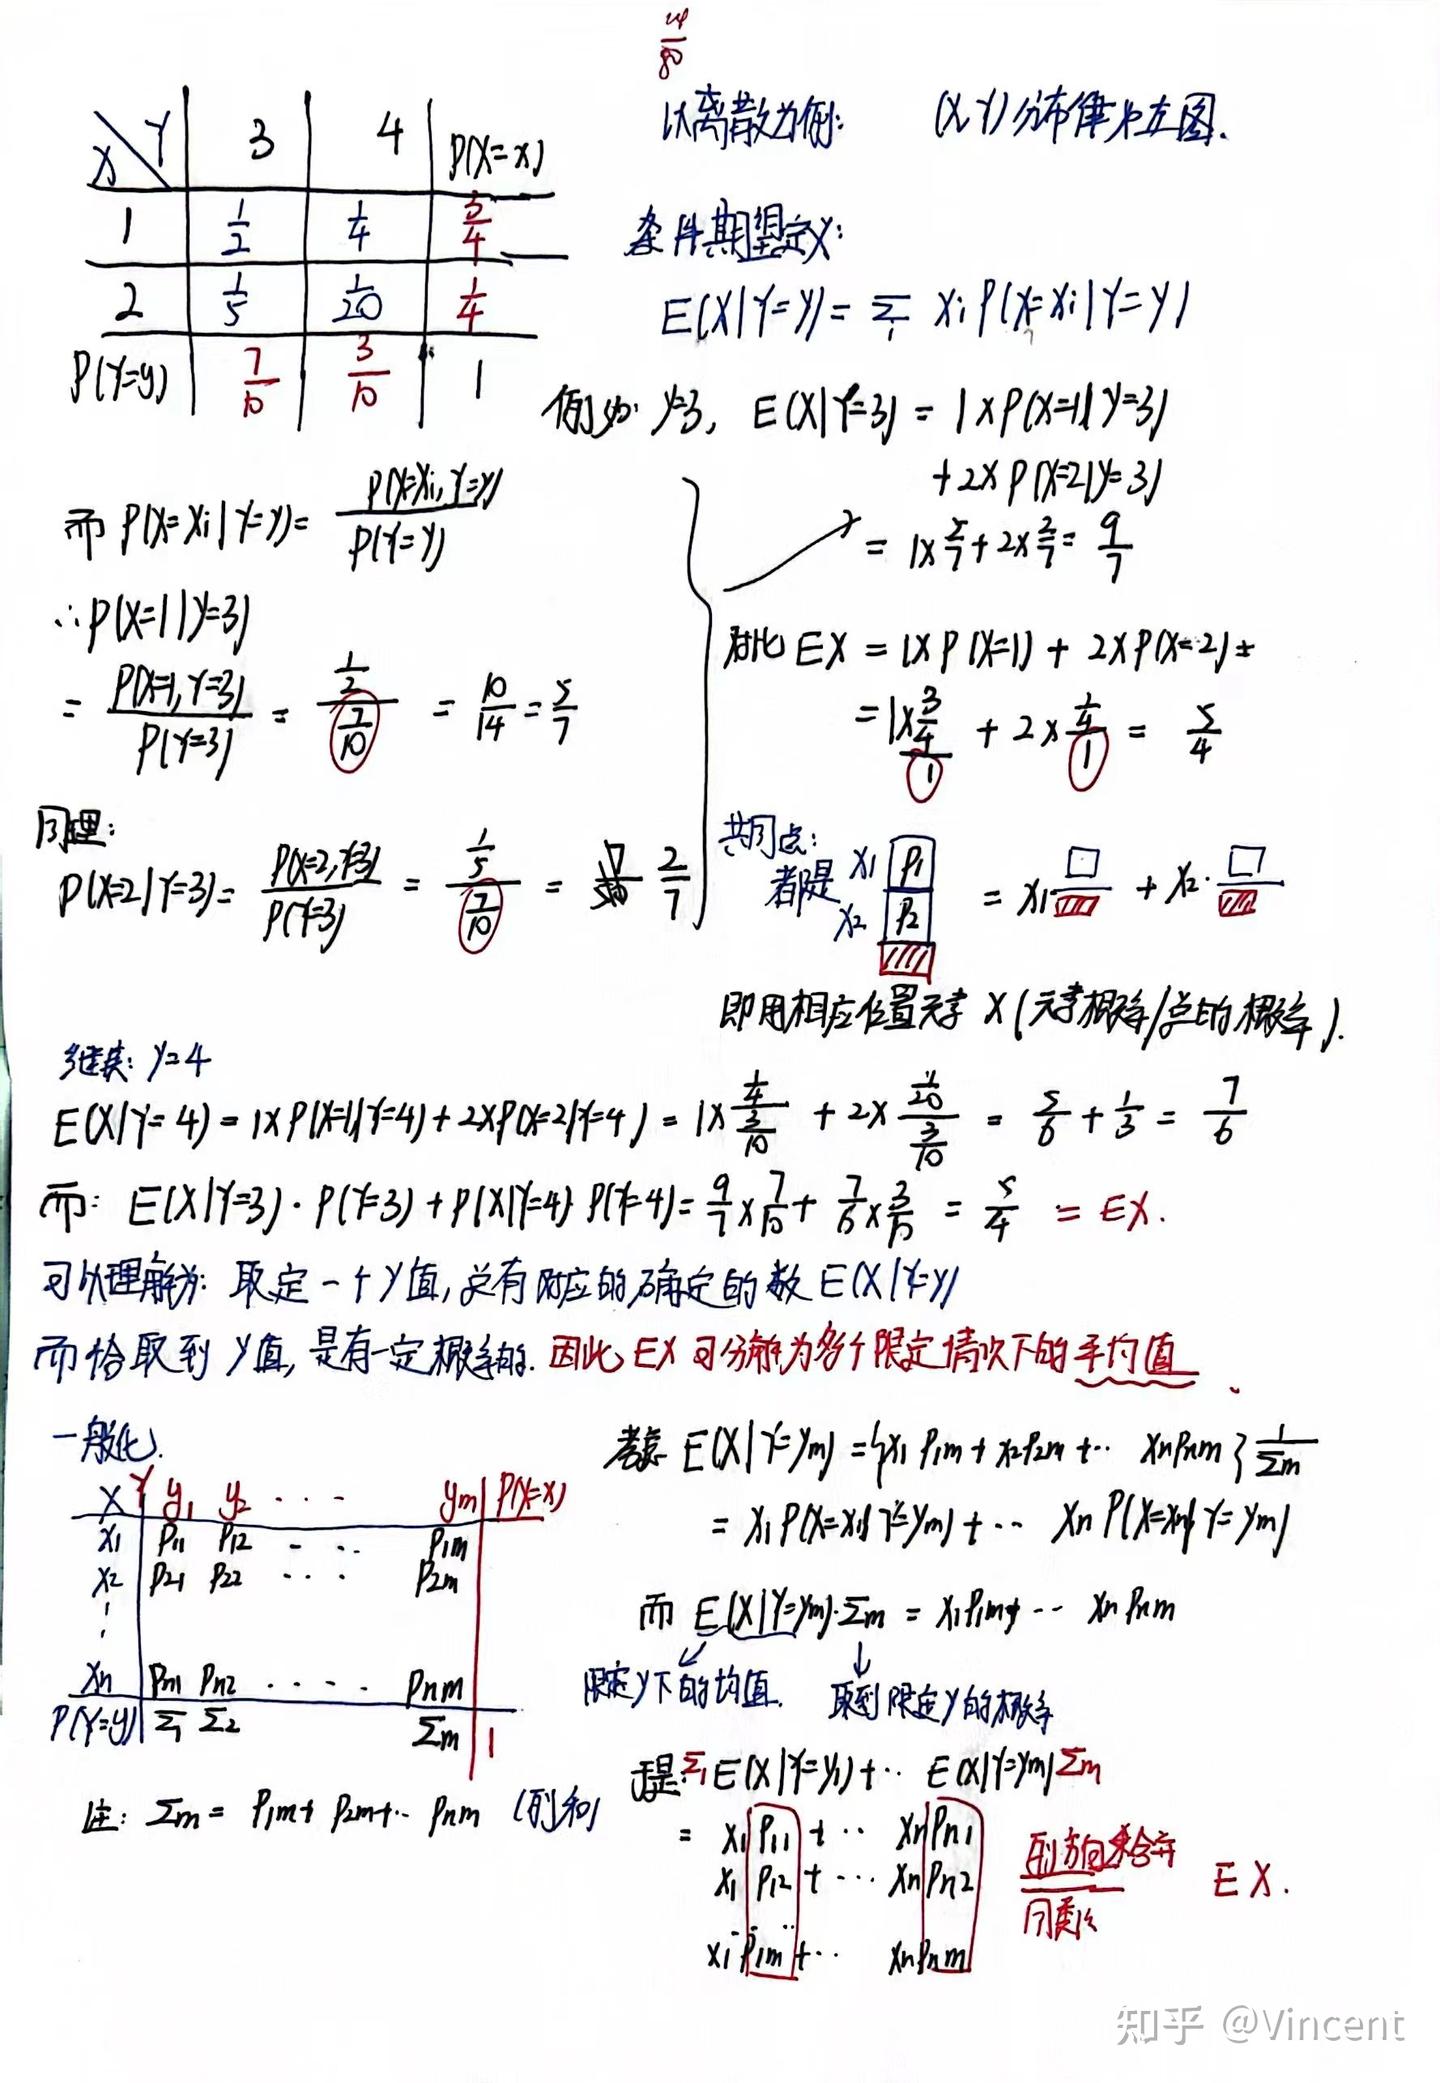 以离散为例: (X,Y)分布律如左图.
X\Y 3 4 P(X=x)
1 1/2 1/4 3/4
2 1/5 1/20 1/4
P(Y=y) 7/10 3/10 1
条件期望定义:
E(X|Y=y)= Σ_i x_i P(X=x_i|Y=y)
例如: y=3, E(X|Y=3) = 1×P(X=1|Y=3)
+2×P(X=2|Y=3)
= 1×5/7+2×2/7= 9/7
而 P(X=x_i|Y=y)= P(X=x_i,Y=y)/P(Y=y)
∴P(X=1|Y=3)
= P(X=1,Y=3)/P(Y=3) = (1/2)/(7/10) = 10/14 = 5/7
同理:
P(X=2|Y=3)= P(X=2,Y=3)/P(Y=3) = (1/5)/(7/10) = 2/7
对比 EX = 1×P(X=1) + 2×P(X=2)
=1×(3/4)/1 + 2×(1/4)/1 = 5/4
共同点:
都是 x1 p1 x2 p2 = x1 □/▨ + x2·□/▨
即用相应位置元素×(元素概率/总的概率).
继续: y=4
E(X|Y=4)=1×P(X=1|Y=4)+2×P(X=2|Y=4)=1×(1/4)/(3/10) + 2×(1/20)/(3/10) = 5/6+1/3= 7/6
而: E(X|Y=3)·P(Y=3)+P(X|Y=4)·P(Y=4)=9/7×7/10+7/6×3/10 = 5/4 = EX.
可以理解为: 取定一个y值,总有对应的确定的数E(X|Y=y)
而恰取到y值,是有一定概率的.因此EX可分解为多个限定情况下的平均值
一般化.
X Y y1 y2 ···· ym P(X=x)
x1 p11 p12 ···· p1m
x2 p21 p22 ···· p2m
⋮
xn pn1 pn2 ···· pnm
P(Y=y) Σ1 Σ2 Σm 1
注: Σm= p1m+p2m+··pnm (列和)
考虑 E(X|Y=ym)={x1p1m+x2p2m+··xnpnm}1/Σm
= x1P(X=x1|Y=ym)+··xnP(X=xn|Y=ym)
而 E(X|Y=ym)·Σm = x1p1m+··xnpnm
限定y下的均值. 取到限定y的概率
于是:Σ1E(X|Y=y1)+··E(X|Y=ym)Σm
= x1p11+··xnpn1
x1p12+···xnpn2
x1p1m+··xnpnm
同类 EX.
知乎 @Vincent